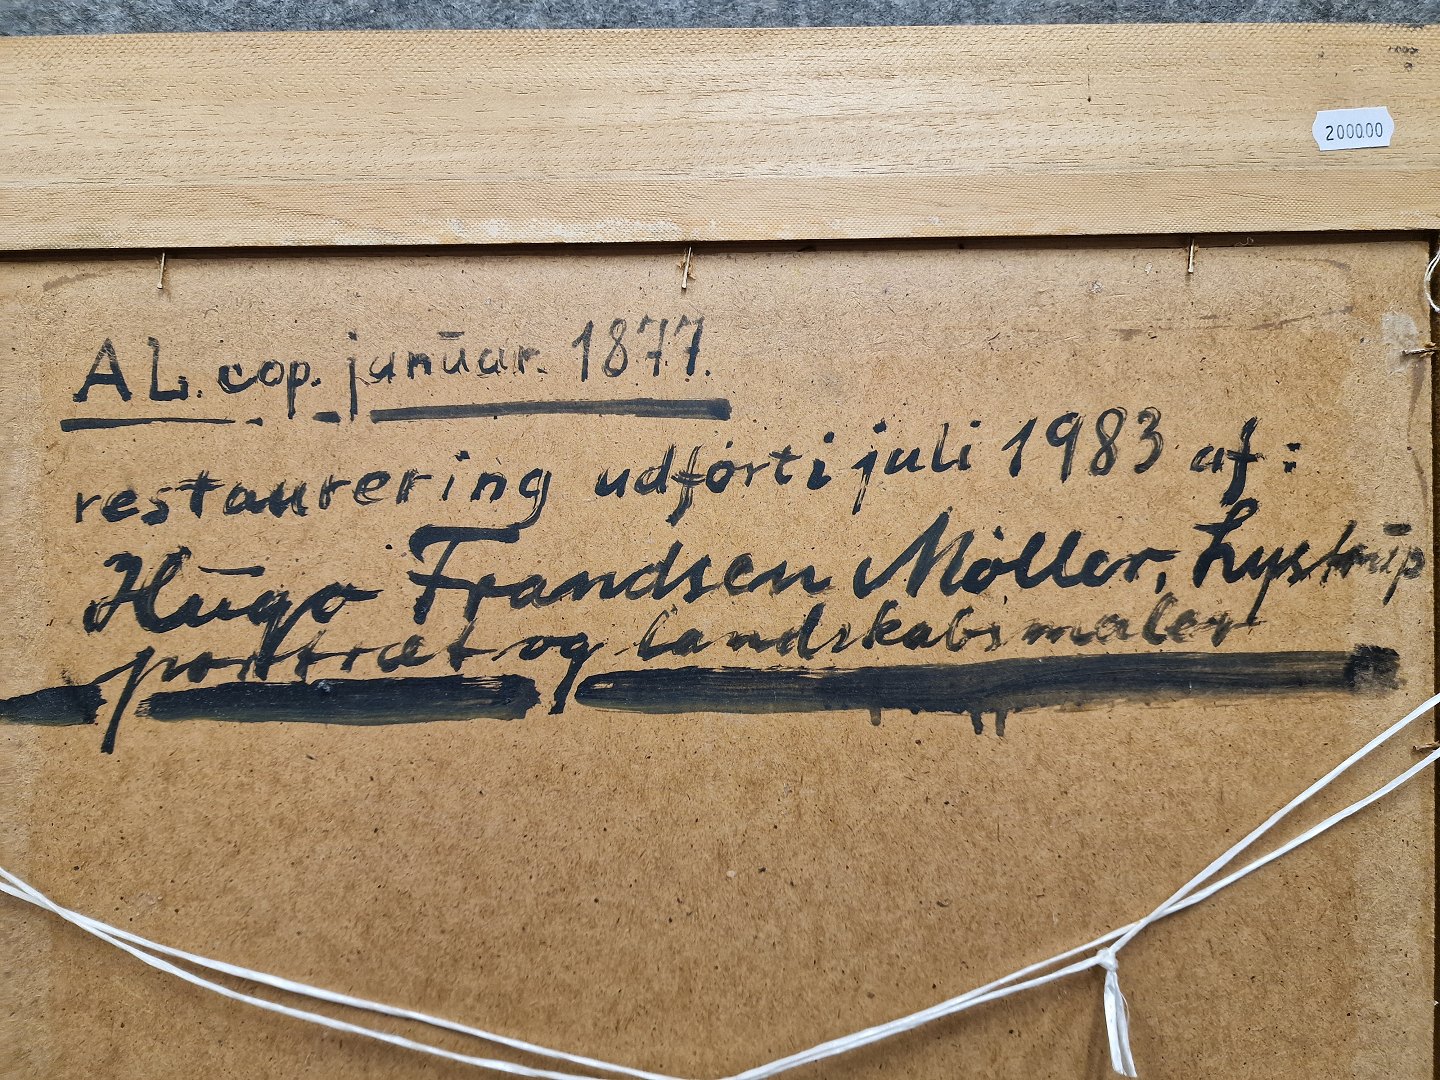 200000
AL. cop. januar. 1877.
restaurering udført i juli 1983 af:
Hugo Frandsen Møller, Lystrup
portræt og landskabsmaler